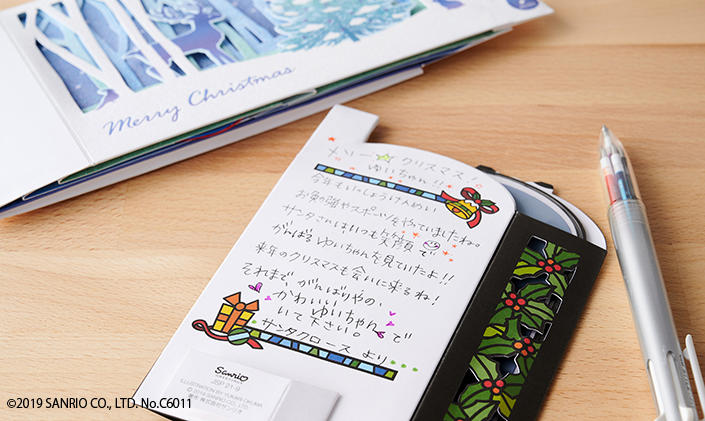 Merry Christmas
メリー☆クリスマス!
ゆいちゃん!!
今年もいっしょうけんめい
お勉強やスポーツをやっていましたね。
サンタさんはいつも笑顔で
がんばるゆいちゃんを見ていたよ!!
来年のクリスマスも会いに来るね!
それまで、がんばりやの、
かわいいゆいちゃんで
いて下さい。
サンタクロースより
Sanrio
JSP 21-9
ILLUSTRATION BY YUKARI OKUMA
©2019 SANRIO CO., LTD. No.C6011